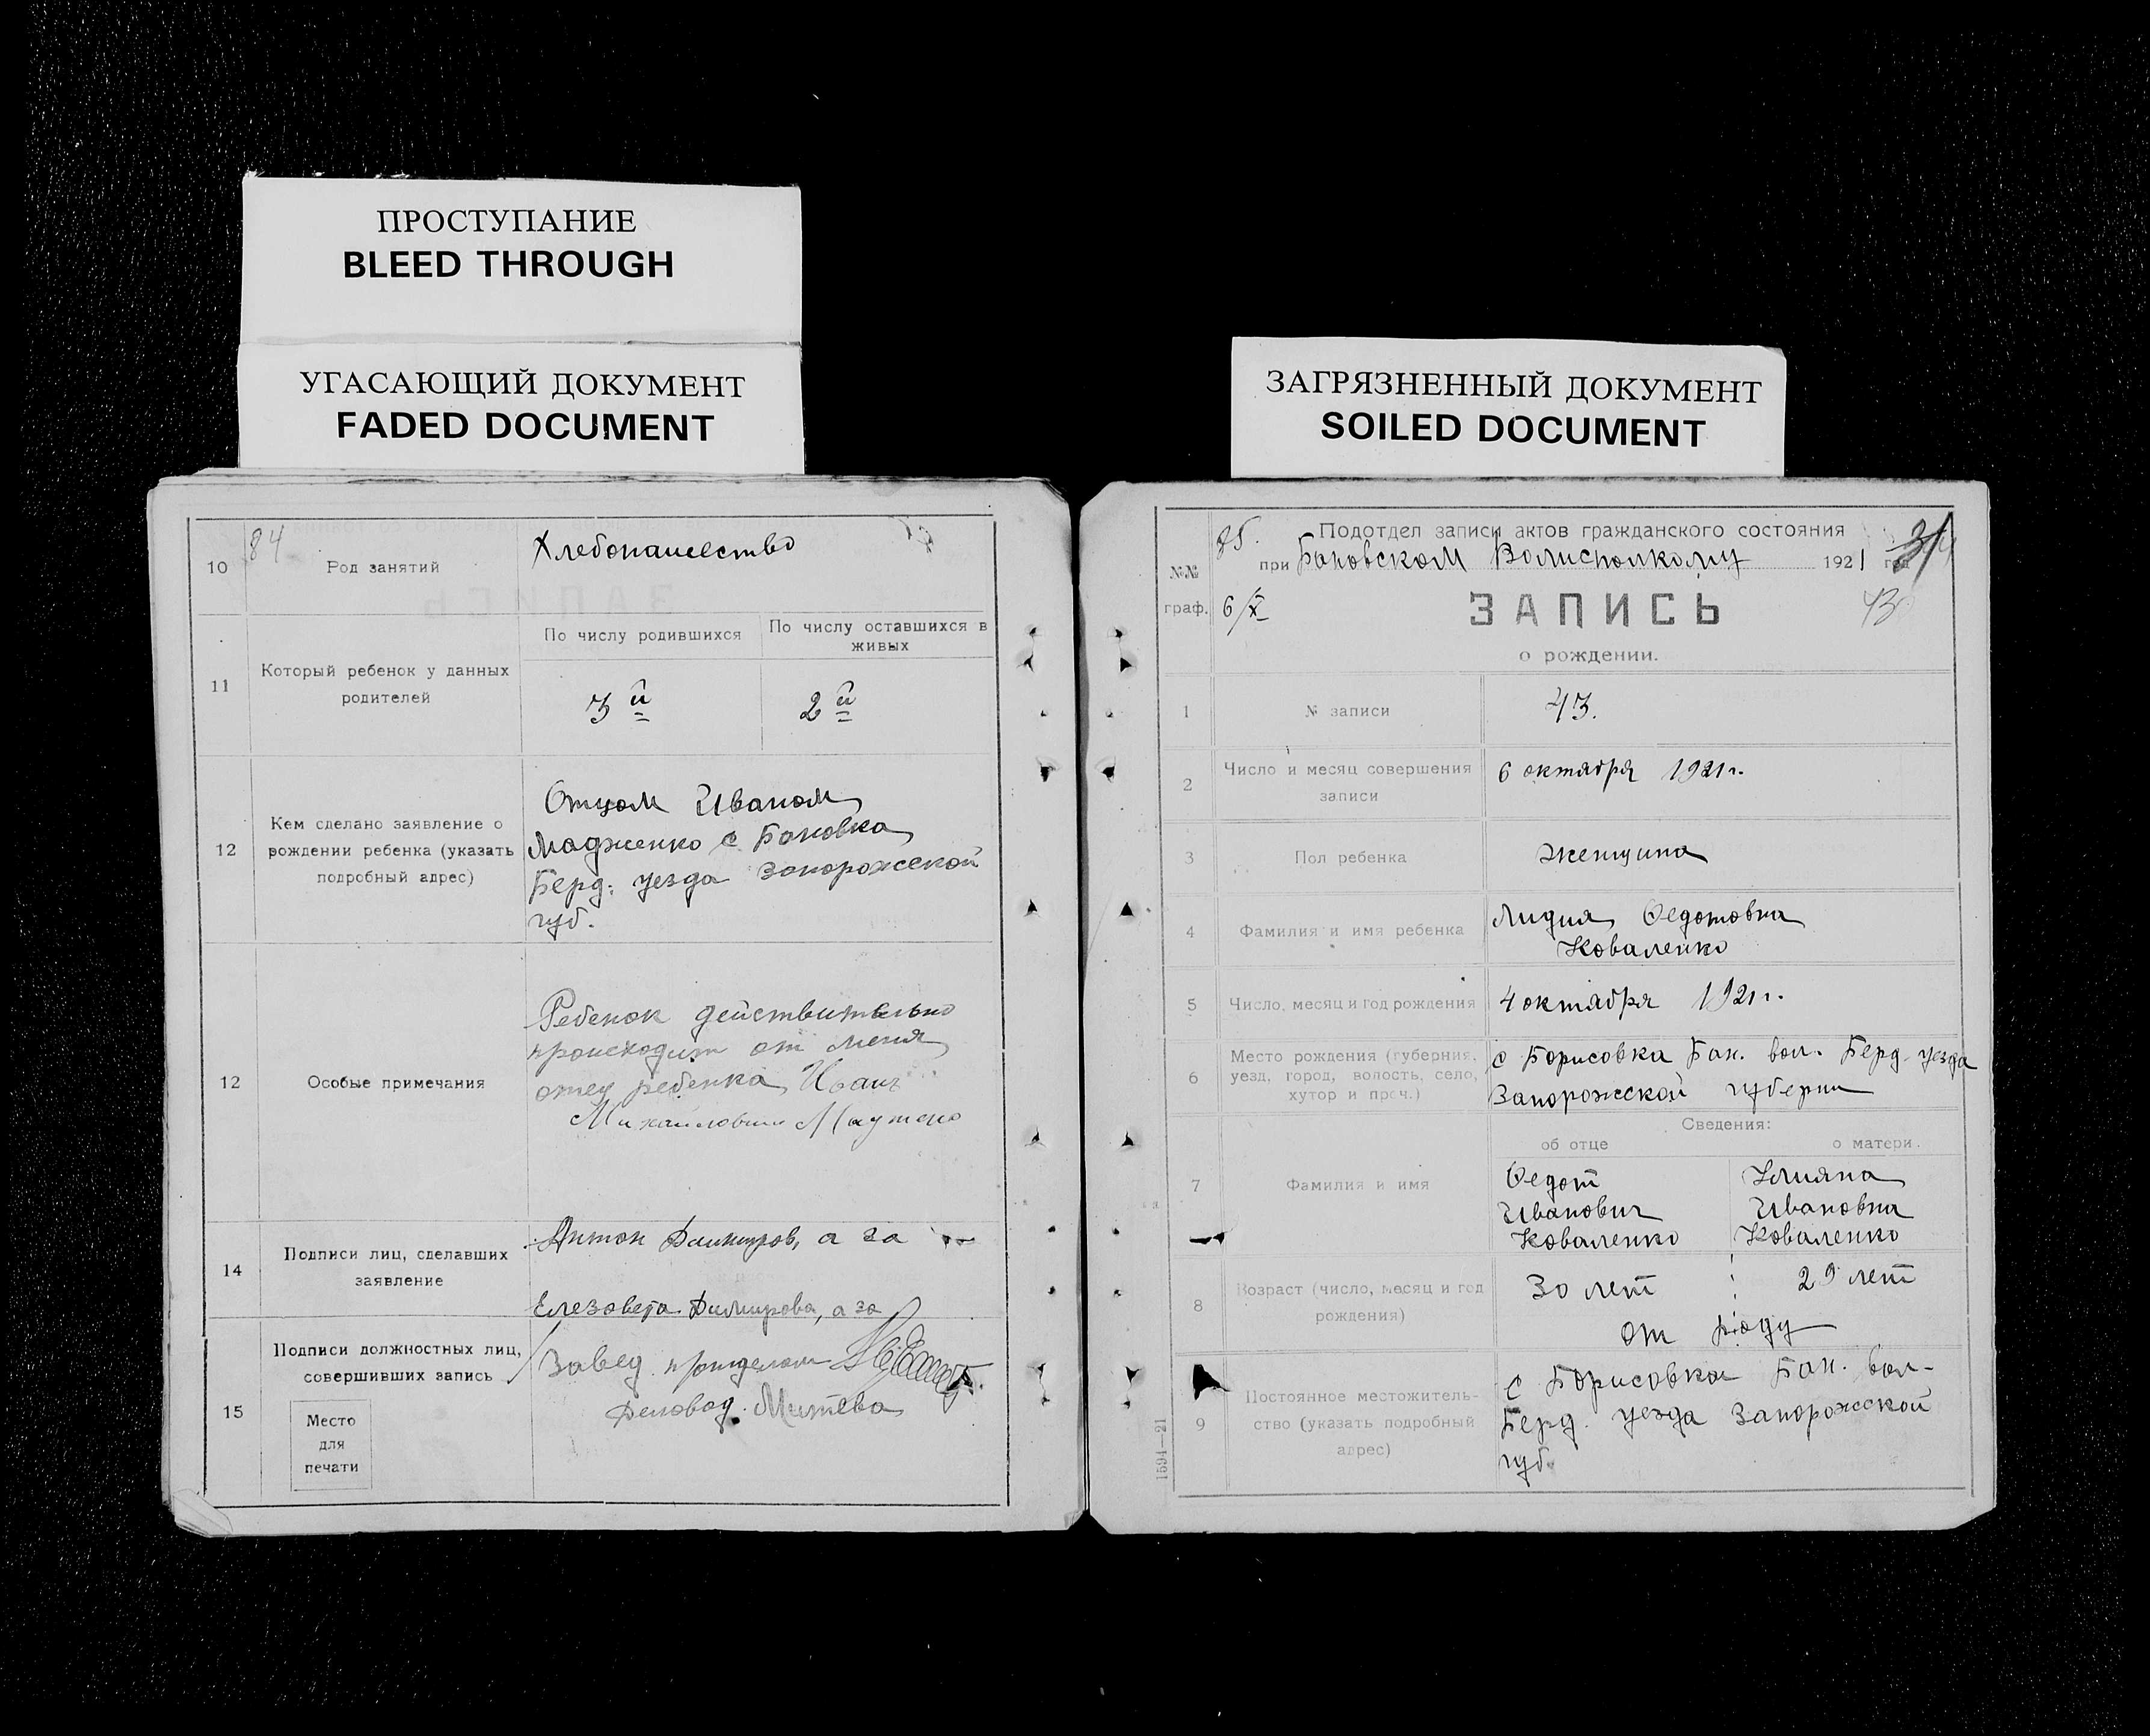 ПРОСТУПАНИЕ
BLEED THROUGH
УГАСАЮЩИЙ ДОКУМЕНТ
FADED DOCUMENT
84
10
Род занятий
Хлебопашество
11
Который ребенок у данных
родителей
По числу родившихся
По числу оставшихся в
живых
3 й
2 й
12
Кем сделано заявление о
рождении ребенка (указать
подробный адрес)
Отцом Иваном
Мадженко с Бановка
Берд. уезда Запорожской
губ.
12
Особые примечания
Ребенок действительно
происходит от меня
отец ребенка Иван
Михайлович
14
Подписи лиц, сделавших
заявление
Антон Димитров, а за
Елезавета Димитрова, а за
15
Подписи должностных лиц,
совершивших запись
Место
для
печати
Завед.
Деловод. Митева
ЗАГРЯЗНЕННЫЙ ДОКУМЕНТ
SOILED DOCUMENT
85.
Подотдел записи актов гражданского состояния
при Бановском Волисполкому 1921 год
№№
граф.
6/X
ЗАПИСЬ
43
о рождении.
1
№ записи
43.
2
Число и месяц совершения
записи
6 октября 1921 г.
3
Пол ребенка
Женщина
4
Фамилия и имя ребенка
Лидия Федотовна
Коваленко
5
Число, месяц и год рождения
4 октября 1921 г.
6
Место рождения (губерния,
уезд, город, волость, село,
хутор и проч.)
с Борисовка Бан. вол. Берд. уезда
Запорожской губерни
Сведения:
об отце
о матери.
7
Фамилия и имя
Федот
Иванович
Коваленко
Ульяна
Ивановна
Коваленко
8
Возраст (число, месяц и год
рождения)
30 лет
29 лет
от роду
9
Постоянное местожитель-
ство (указать подробный
адрес)
с Борисовка Бан. вол-
Берд. уезда Запорожской
губ.
1594—21